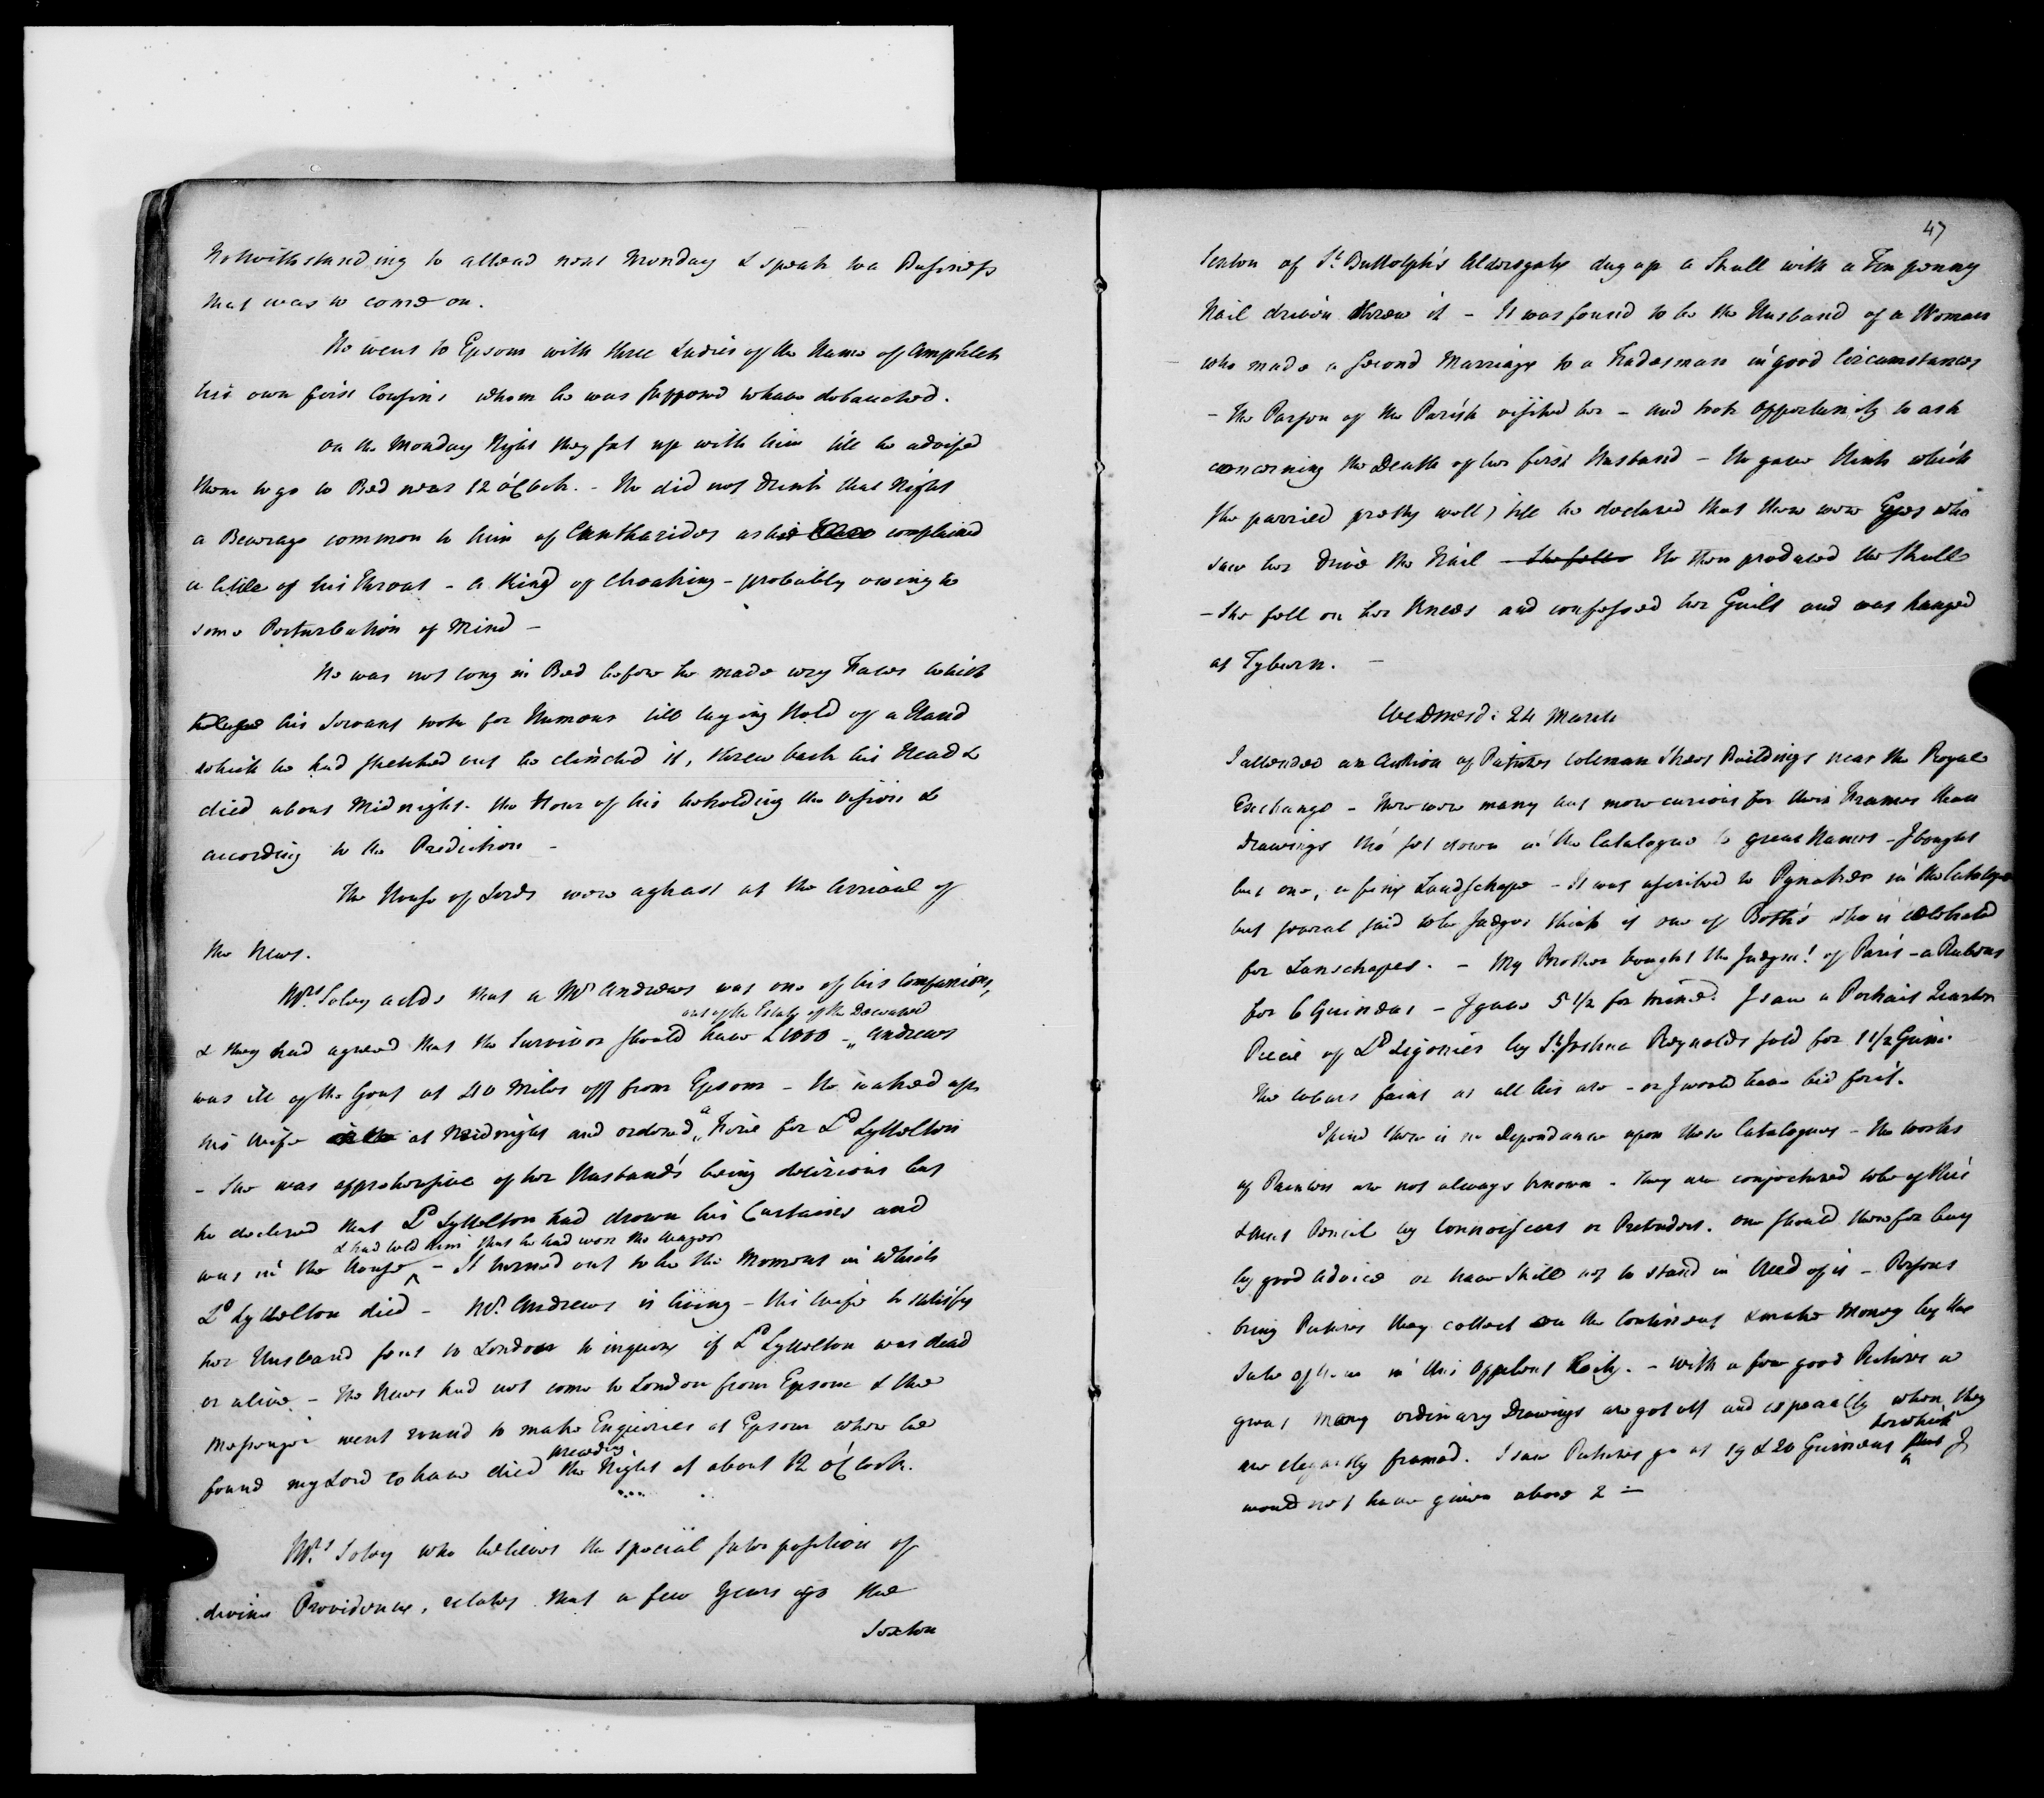 Notwithstanding to attend next Monday & speak to a Business
that was to come on.
He went to Epsom with three Ladies of the Name of Amphlett
his own first Cousins whom he was supposed to have debauched.
On the Monday Night they sat up with him till he advised
them to go to Bed near 12 o'Clock. - He did not drink that Night
a Beverage common to him of Cantharides as he complained
a little of his Throat - a Kind of Choaking - probably owing to
some Perturbation of Mind -
He was not long in Bed before he made wry Faces which
his Servant took for Humour till laying Hold of a Hand
which he had stretched out he clinched it, threw back his Head &
died about Midnight. the Hour of his beholding the Vision &
according to the Prediction -
The House of Lords were aghast at the Arrival of
the News.
Mrs Soley adds that a Mr Andrews was one of his Companions,
out of the Estate of the Deceased
& they had agreed that the Survivor should have £1000 - Andrews
was ill of the Gout at 40 Miles off from Epsom - He waked up
his Wife at Midnight and ordered a Fire for Ld Lyttelton
- She was apprehensive of her Husband's being delirious but
he declared that Ld Lyttelton had drawn his Curtains and
& had told him that he had won the Wager
was in the House - It turned out to be the Moment in which
Ld Lyttelton died - Mr Andrews is living - His Wife to satisfy
her Husband sent to London to inquire if Ld Lyttelton was dead
or alive - The News had not come to London from Epsom & the
Messenger went round to make Enquiries at Epsom where he
preceding
found my Lord to have died the Night at about 12 o'Clock.
Mrs Soley who believes the special Interposition of
divine Providence, relates that a few Years ago the
Sexton
47
Sexton of St Buttolph's Aldersgate dug up a Skull with a Ten penny
Nail driven threw it - It was found to be the Husband of a Woman
who made a second Marriage to a Tradesman in good Circumstances
- The Parson of the Parish visited her - and took Opportunity to ask
concerning the Death of her first Husband - He gave Hints which
She parried pretty well, till he declared that there were Eyes who
saw her drive the Nail - She fell He then produced the Skull
- She fell on her Knees and confessed her Guilt and was hanged
at Tyburn. -
Wednesd: 24 March
I attended an Auction of Pictures Coleman Street Buildings near the Royal
Exchange - There were many but more curious for their Frames than
Drawings tho' set down in the Catalogue to great Names - I bought
but one, a fine Landschape - It was ascribed to Pynaker in the Catalogue
but several said to be Judges think it one of Both's who is celebrated
for Lanschapes. - My Brother bought the Judgmt of Paris - a Rubens
for 6 Guineas - I gave 5 1/2 for mine. I saw a Portrait
Piece of Ld Ligonier by Sr Joshua Reynolds sold for 1 1/2 Guin:
The Colours faint as all his are - or I would have bid for it.
I find there is no Dependance upon these Catalogues - the Works
of Painters are not always known - They are conjectured to be of this
& that Pencil by Connoisseurs or Pretenders. one should therefor buy
by good Advice or have Skill not to stand in Need of it - Persons
bring Pictures they collect on the Continent & make Money by the
Sale of them in this oppulent City. - With a few good Pictures a
great many ordinary Drawings are got off and especially when they
for which
are elegantly framed. I saw Pictures go at 19 & 20 Guineas that I
would not have given above 2 -